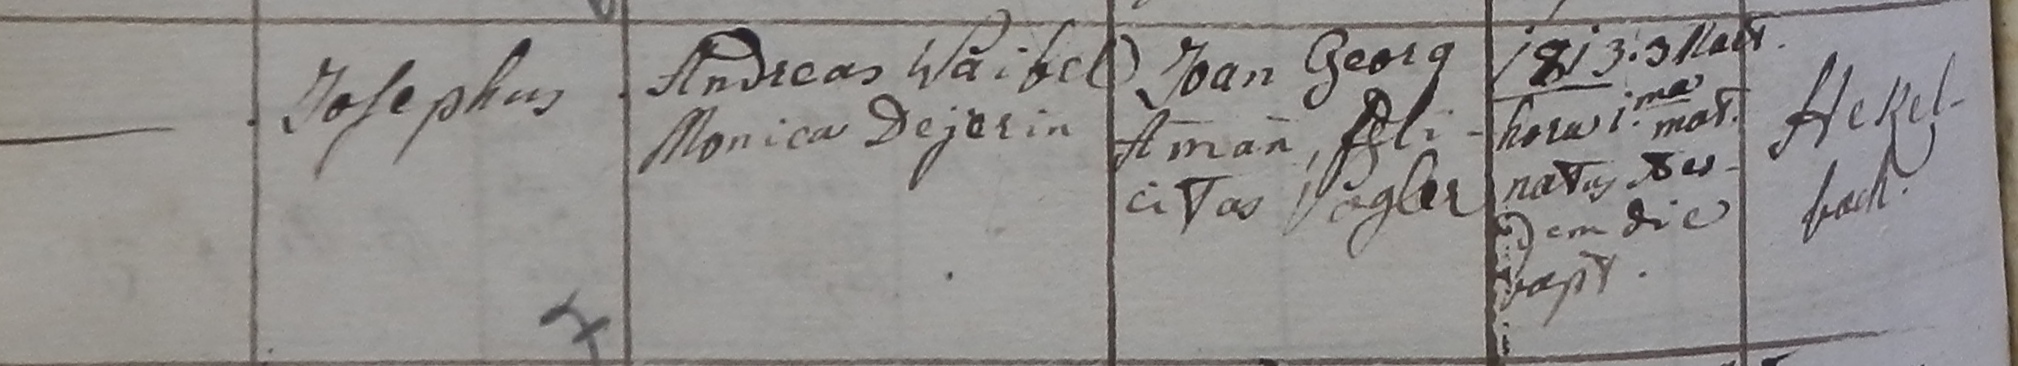 Josephus
Andreas Waibel
Monica Dejerin
Joan Georg
Aman̄, Feli-
citas Vogler
1813. 3 Mart.
hora 1.ma mat.
natus
dem die
bapt.
Hekel-
bach.